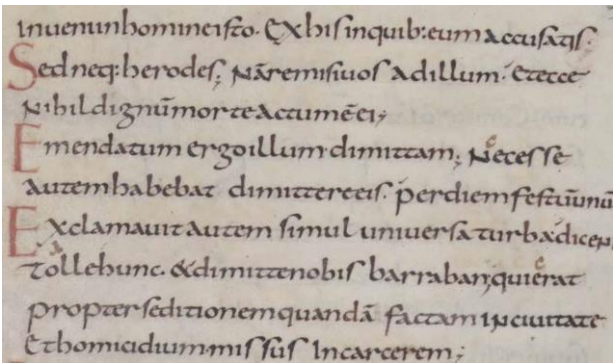 inueniinhomineisto. Exhisinquib:eumaccusatis:
Sedneq:herodes; Nāremisiuos adillum. Etecce
Nihildignūmorteactumēei;
Emendatum ergoillum dimittam; Necesse
autemhabebat dimittereeis. perdiemfestūunū
Exclamauit autem simul uniuersaturbadicens
tollehunc. &dimittenobis barraban;quierat
propterseditionemquandā factam inciuitate
Ethomicidium.missus Incarcerem;